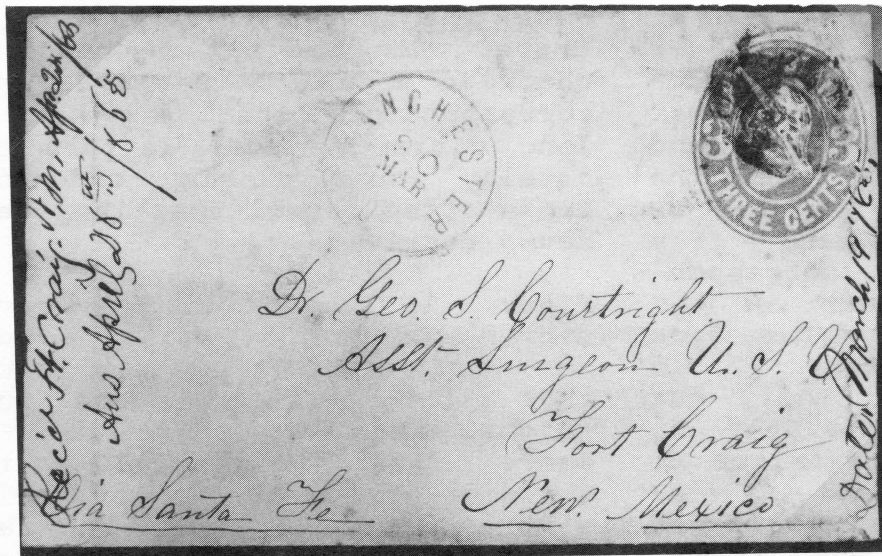 Rec'd Ft. Craig, N.M. Apr.
Ans April 28th /1865
ANCHESTER
20
MAR
THREE CENTS
3 3
Dr. Geo. S. Courtright.
Asst. Surgeon U. S. V
Fort Craig
New. Mexico
Via Santa Fe
Date, March 19th /65,